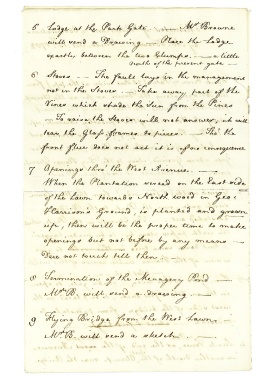 5 Lodge at the Park Gate — Mr Browne
will send a Drawing — Place the Lodge
exactly between the two Clumps. — a little
North of the present gate —
6 Stoves — The fault lays in the management
not in the Stoves — Take away part of the
Vines which shade the Sun from the Pines
— To raise the Stoves will not answer, it will
tear the Glass frames to pieces — Tho' the
front flue does not act it is of no consequence
7 Openings thro' the West Avenue. —
When the Plantation versed on the East side
of the Lawn towards North wood in Geo:
Harrison's Ground, is planted and grown
up, then will be the proper time to make
openings but not before by any means —
Does not touch till then —
8 Termination of the Menagery Pond —
Mr B. will send a drawing. —
9 Flying Bridge from the West Lawn —
Mr B. will send a sketch. —